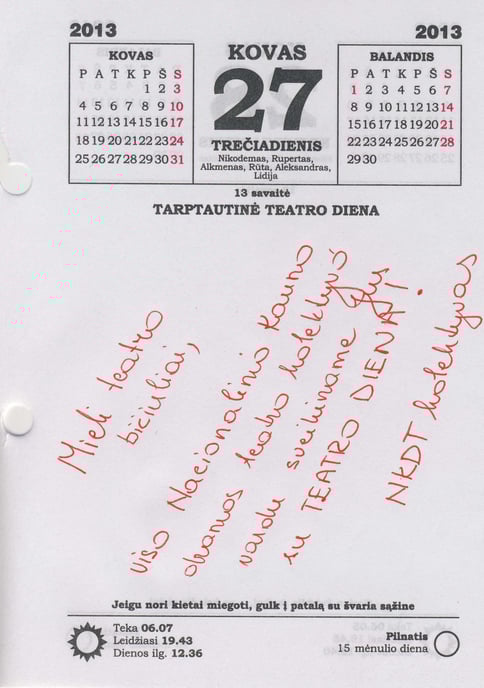 2013
2013
KOVAS
P A T K P Š S
1 2 3
4 5 6 7 8 9 10
11 12 13 14 15 16 17
18 19 20 21 22 23 24
25 26 27 28 29 30 31
KOVAS
27
TREČIADIENIS
Nikodemas, Rupertas,
Alkmenas, Rūta, Aleksandras,
Lidija
BALANDIS
P A T K P Š S
1 2 3 4 5 6 7
8 9 10 11 12 13 14
15 16 17 18 19 20 21
22 23 24 25 26 27 28
29 30
13 savaitė
TARPTAUTINĖ TEATRO DIENA
Mieli teatro
bičiuliai,
viso Nacionalinio Kauno
dramos teatro kolektyvo
vardu sveikiname Jus
su TEATRO DIENA!
NKDT kolektyvas
Jeigu nori kietai miegoti, gulk į patalą su švaria sąžine
Teka 06.07
Leidžiasi 19.43
Dienos ilg. 12.36
Pilnatis
15 mėnulio diena